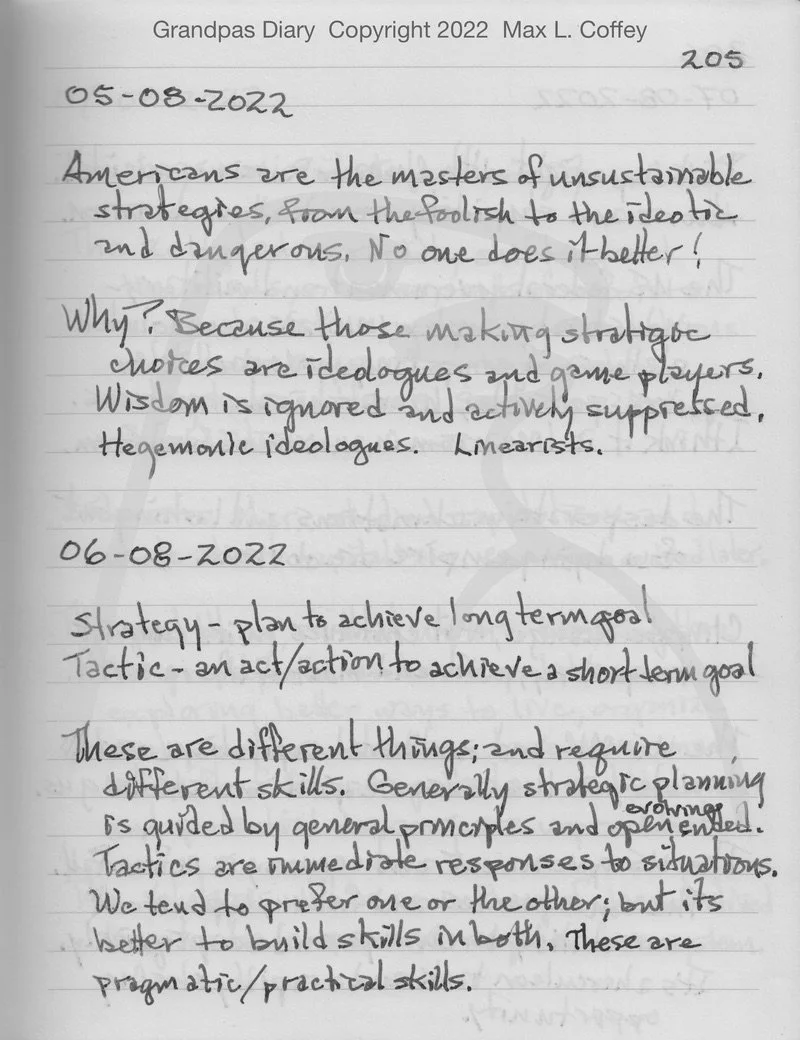 Grandpas Diary Copyright 2022 Max L. Coffey
205
05-08-2022
Americans are the masters of unsustainable
strategies, from the foolish to the ideotic
and dangerous. No one does it better!
Why? Because those making stratigec
choices are ideologues and game players.
Wisdom is ignored and actively suppressed.
Hegemonic ideologues. Linearists.
06-08-2022
Strategy - plan to achieve long term goal
Tactic - an act/action to achieve a short term goal
These are different things; and require
different skills. Generally strategic planning
evolving
is guided by general principles and open ended.
Tactics are immediate responses to situations.
We tend to prefer one or the other; but its
better to build skills in both. These are
pragmatic/practical skills.